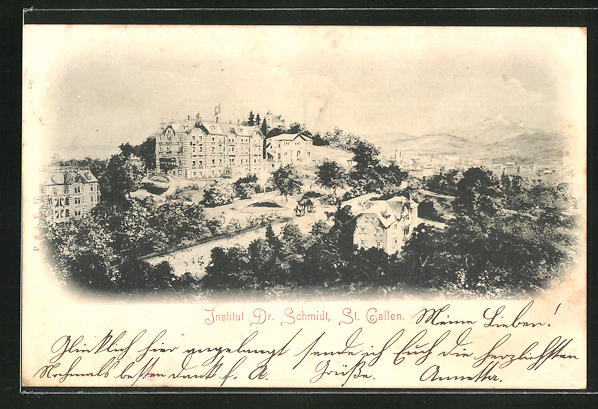 Institut Dr. Schmidt, St. Gallen.
Meine Lieben!
Glücklich hier angelangt sende ich Euch die herzlichsten
Nochmals besten dank f. A. Grüße. Annetta.